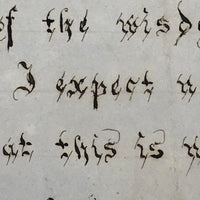 of the wisd
I expect
at this is